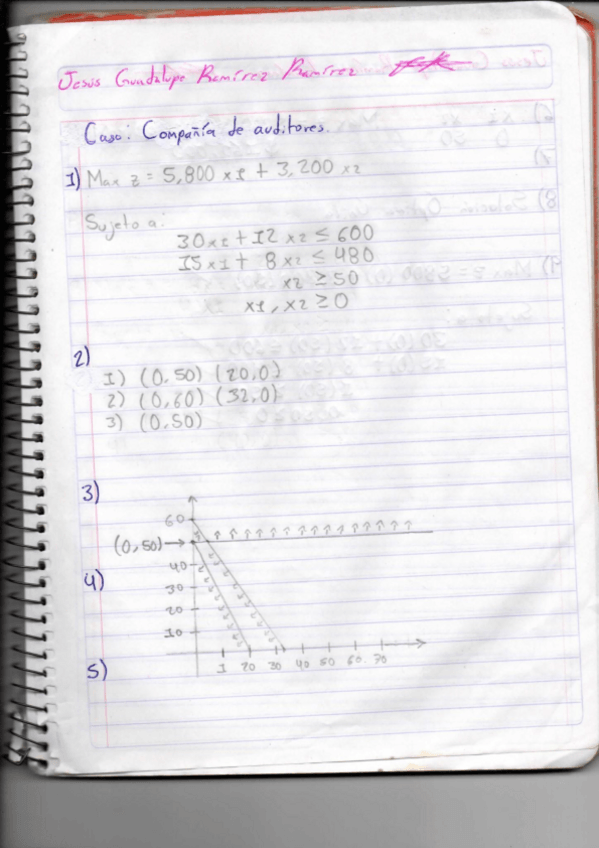 Jesus Guadalupe Ramírez Ramírez
Caso: Compañía de auditores.
1) Max z = 5,800 x1 + 3,200 x2
Sujeto a:
30x1 + 12 x2 ≤ 600
15x1 + 8 x2 ≤ 480
x2 ≥ 50
x1, x2 ≥ 0
2)
1) (0,50) (20,0)
2) (0,60) (32,0)
3) (0,50)
3)
60
(0,50)
40
4)
30
20
10
1 20 30 40 50 60 70
5)